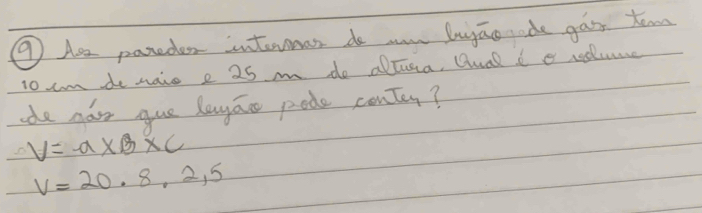 9 As paredes internas de um bujão de gás tem
10 cm de raio e 25 m de altura. Qual é o volume
de gás que bujão pode conter?
V = a x B x C
V = 20 . 8 . 2,5